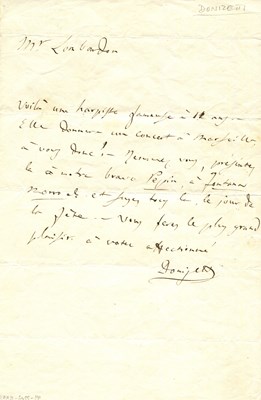 DONIZETTI
Mr Lombardon
Voilà une harpiste fameuse à 12 ans
Elle donnera un concert à Marseille
à vous donc! — Remuez vous, présentez
le à notre brave Pépin, à Fontana
et soyez tous là, le jour de
la fête — Vous ferez le plus grand
plaisir à votre affectionné
Donizetti